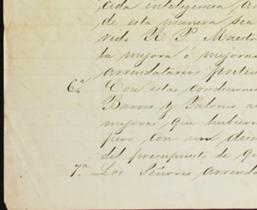 cada inteligencia, a
de esta manera sea
redo R. P. Maest
la mejora ó mejoras
arrendatarios preten
6ª Con estas condiciones
Barrio y Palomo a
mejoras que hubier
pero con un desc
del presupuesto de q
7ª Los Señores arrenda